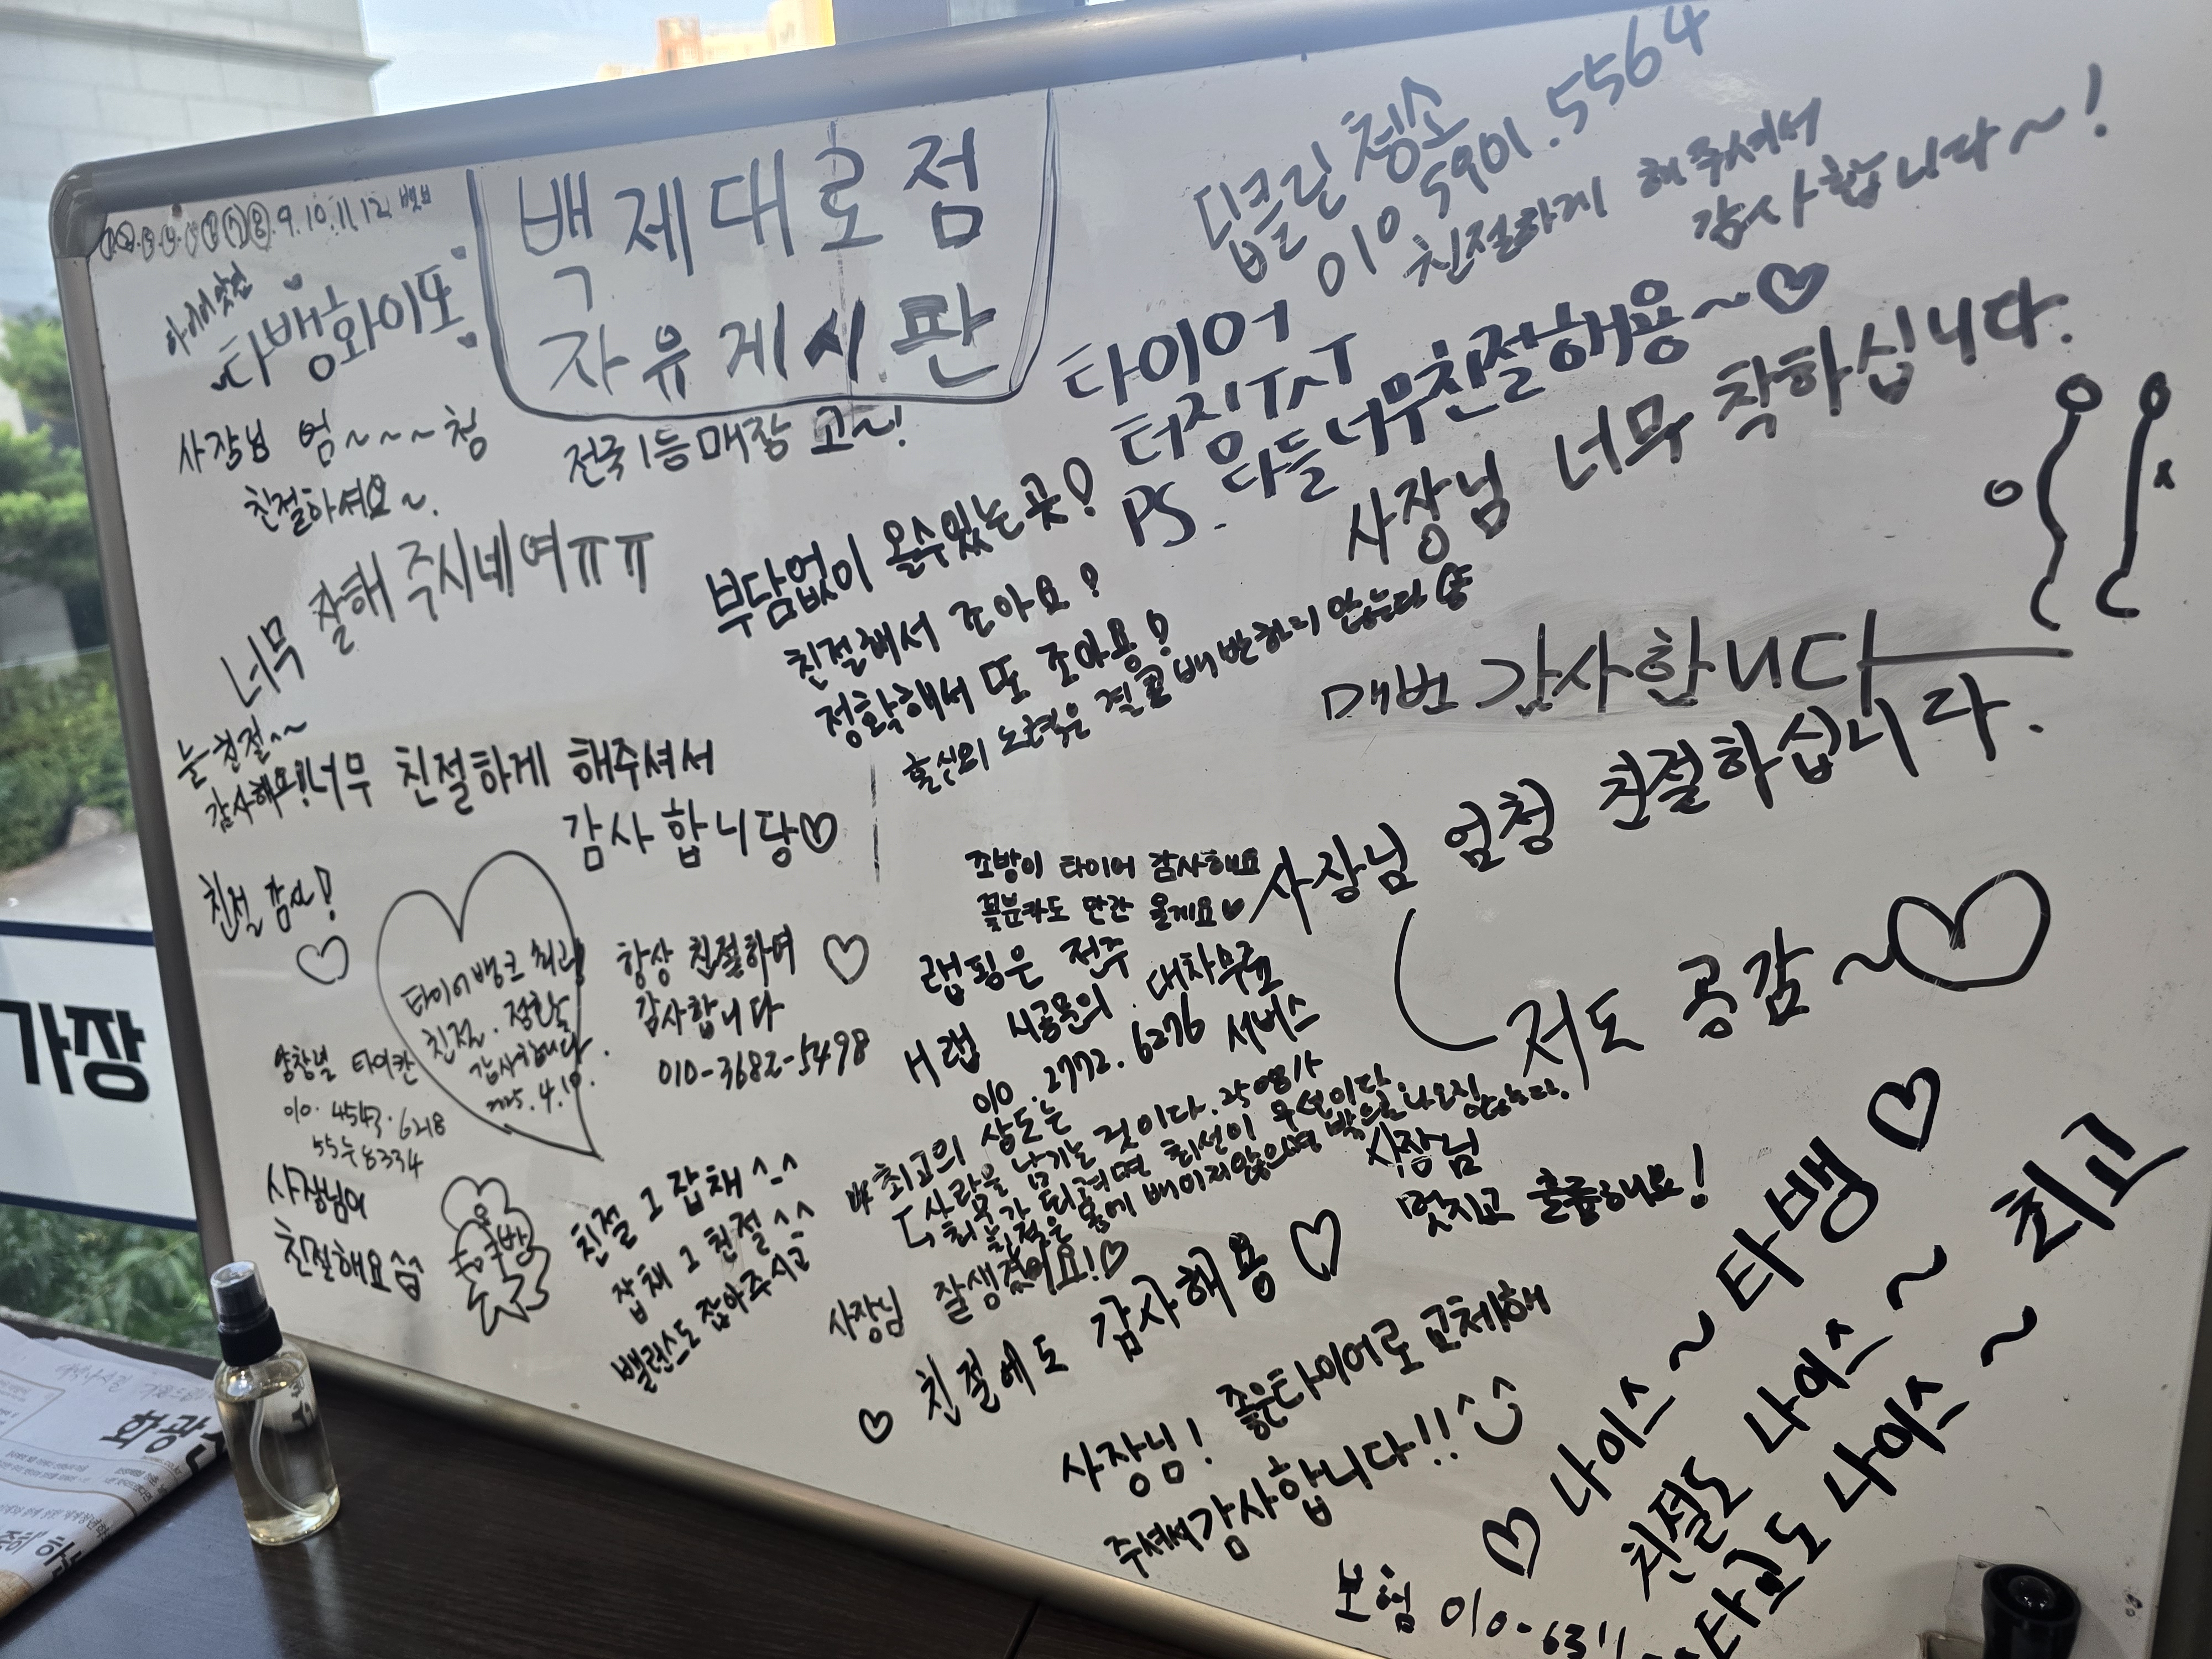 백제대로점
자유게시판
9.10.11.12
타뱅화이또
사장님 엄~~~청
친절하셔요~.
전국1등매장 고~!
너무 잘해주시네여ㅠㅠ
늘 친절^^
감사해요!!
너무 친절하게 해주셔서
감사합니당♡
친절 감사!
♡
타이어뱅크 최고!
친절. 정확
감사합니다.
2025.4.19.
항상 친절하여 ♡
감사합니다
010-3682-5498
010.4543.6218
8334
사장님이
친절해요
친절 그 잡채^-^
잡채 그 친절^^
밸런스도 잡아주시고
딥클린 청소
010 5901.5564
친절하게 해주셔서
감사합니다~!
타이어
터짐ㅜㅅㅜ
PS. 다들 너무친절해용~♡
사장님 너무 착하십니다.
부담없이 올수있는 곳!
친절해서 조아요!
정확해서 또 조아용!
혼신의 노력은 결코 배반하지 않는다
매번 감사합니다
사장님 엄청 친절하십니다.
저도 공감~♡
조방이 타이어 감사해요
꽃분카도 만간 올게요♡
랩핑은 전주
H랩 시공문의. 대차무료
010.2772.6276 서비스
최고의 상도는
사람을 남기는 것이다.
최고가 되려면 최선이 우선이다.
친절은 몸에 배이지않으면 밖으로 나오질 않는다.
사장님
멋지고 훌륭해요!
사장님 잘생겼어요!♡
♡ 친절에도 감사해용 ♡
사장님! 좋은타이어로 교체해
주셔서감사합니다!!
♡ 나이스~ 타뱅♡
친절도 나이스~ 최고
타고도 나이스~
보험 010-6311
가장